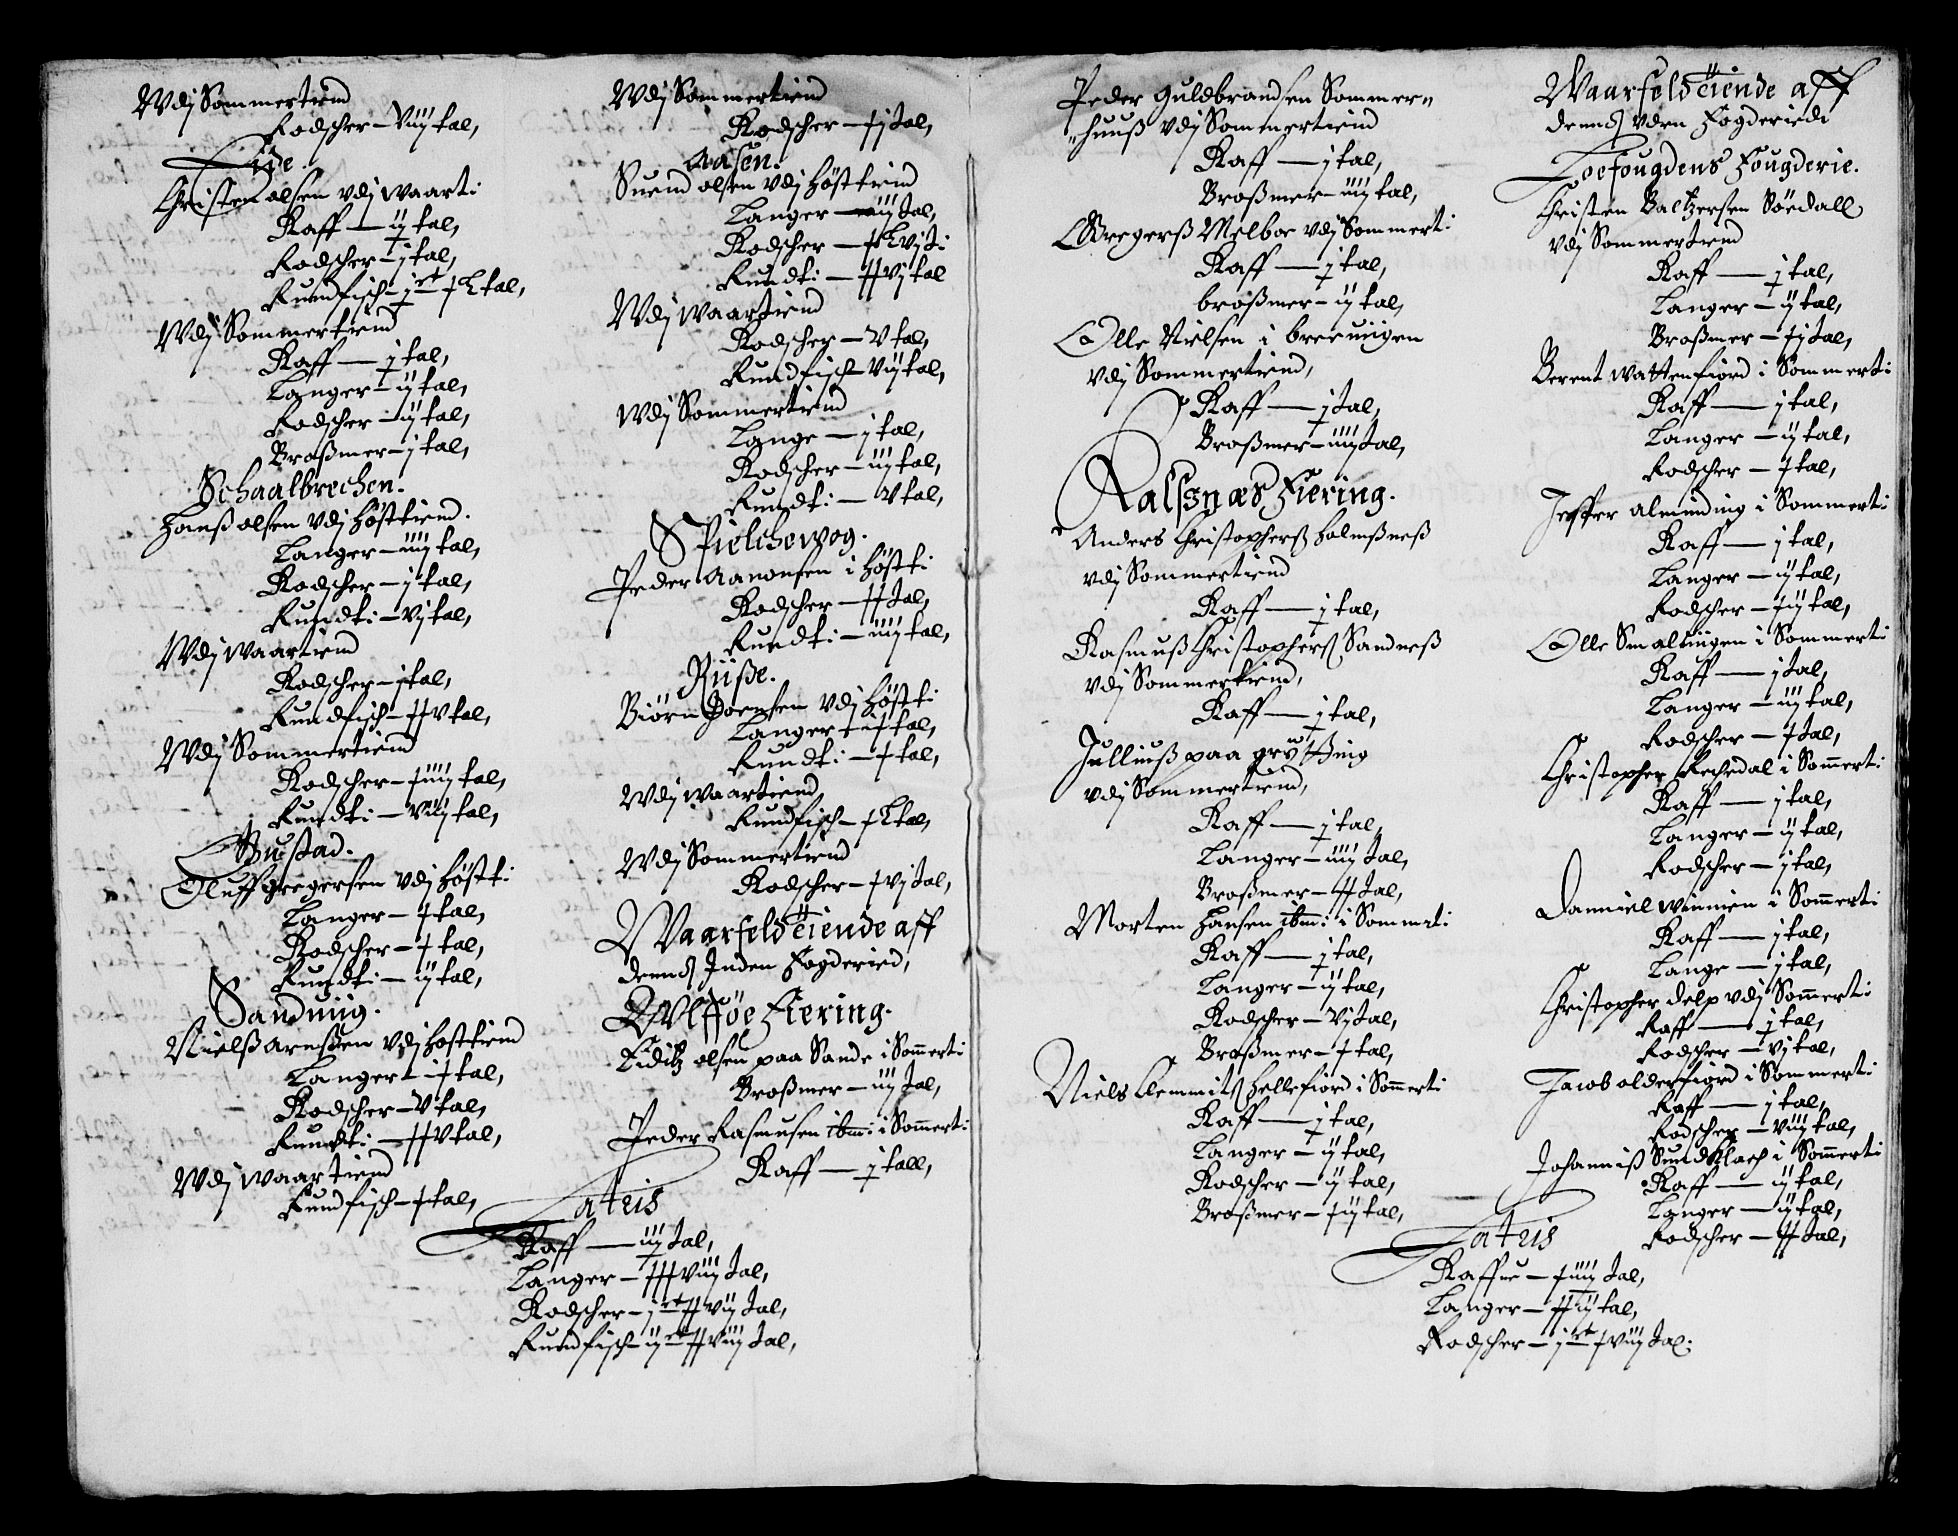 Wdj Sommertiend
Rodscher — viij tal,
Eide.
Christen olsen vdj waarti:
Raff — ij tal,
Rodscher — j tal,
Rundfisch — j
Wdj Sommertiend
Raff — j tal,
Langer — ij tal,
Rodscher — ij tal,
Broßmer — j tal,
Schaalbrechen.
Hanß olsen vdj Høsttiend.
Langer — iiij tal,
Rodscher — j tal,
Rundt: — vj tal,
Wdj waartiend
Rodscher — j tal,
Rundfisch — ꟾꟾv tal,
Wdj Sommertiend
Rodscher — ꟾiiij tal,
Rundt: — viij tal,
Bustad.
Oluff gregersen vdj Høstt:
Langer — ꟾ tal,
Rodscher — ꟾ tal,
Rundt: — ij tal,
Sanduiig.
Nielß arnßen vdj Høsttiend
Langer — ꟾ tal,
Rodscher — v tal,
Rundt: — ꟾꟾv tal,
Wdj waartiend
Rundfisch — ꟾ tal,
Wdj Sommertiend
Rodscher — ꟾj tal,
Aasen.
Suend olsen vdj Høsttiend
Langer — iiij tal,
Rodscher —
Rundt: — ꟾꟾvj tal
Wdj waartiend
Rodscher — v tal,
Rundfisch — vij tal,
Wdj Sommertiend
Lange — j tal,
Rodscher — iij tal,
Rundt: — v tal,
Spielchewog.
Peder Aanonsen i Høstti
Rodscher — ꟾꟾ tal,
Rundt: — iiij tal,
Riiße.
Biørn Joensen vdj Høstti
Langer — ꟾ tal,
Rundt: — ꟾ tal,
Wdj waartiend,
Rundfisch —
Wdj Sommertiend
Rodscher — ꟾvj tal,
Waarfeld tiende aff
dend Inden Fogderied,
Wlfføe Fiering.
Fiditz olsen paa Sande i Sommerti
Broßmer — iij tal,
Peder Rasmusen ibm: i Sommerti:
Raff — j tall,
Latris
Raff — iij tal,
Langer — ꟾꟾꟾviij tal,
Rodscher — j ꟾꟾvij tal,
Rundfisch — ij ꟾꟾviij tal,
Peder Guldbrandsen Sommer„
„huuß vdj Sommertiend
Raff — j tal,
Broßmer — iiij tal,
Gregerß Melboe vdj Sommerti:
Raff — j tal,
broßmer — ij tal,
Olle Nielsen i breeuigen
vdj Sommertiend,
Raff — j tal,
Broßmer — iiij tal,
Ralßnæs Fiering.
Anders Christophers Holmßneß
vdj Sommertiend
Raff — j tal,
Rasmuß Christophers Sandneß
vdj Sommertiend,
Raff — j tal,
Julliuß paa
vdj Sommertiend,
Raff — j tal,
Langer — iiij tal,
Broßmer — ꟾꟾ tal,
Morten Hansen ibm: i Sommerti
Raff — j tal,
Langer — ij tal,
Rodscher — vj tal,
Broßmer — ꟾ tal,
Niels Clemmits Hellefiord i Sommerti
Raff — j tal,
Langer — ij tal,
Rodscher — ij tal,
Broßmer — ꟾij tal,
Waarfeld tiende aff
dend vden Fogderiedt
Toefougdens Fougderie.
Christen Baltzersen Sørdall
vdj Sommertiend
Raff — j tal,
Langer — ij tal,
Broßmer — ꟾj tal,
Berent wattenfiord i Sommerti
Raff — j tal,
Langer — ij tal,
Rodscher — ꟾ tal,
Jesper alminding i Sommerti
Raff — j tal,
Langer — ij tal,
Rodscher — ꟾij tal,
Olle Smaluigen i Sommerti
Raff — j tal,
Langer — iij tal,
Rodscher — ꟾ tal,
Christopher Rechedal i Sommerti:
Raff — j tal,
Langer — ij tal,
Rodscher — j tal,
Danniel winnien i Sommerti
Raff — j tal,
Lange — j tal,
Christopher delp vdj Sommerti
Raff — j tal,
Rodscher — vj tal,
Jacob olderfiord i Sommerti
Raff — j tal,
Rodscher — viij tal,
Johanniß Sundklach i Sommerti
Raff — ij tal,
Langer — ij tal,
Rodscher — ꟾꟾ tal,
Latris
Raffue — ꟾiiij tal,
Langer — ꟾꟾij tal,
Rodscher — j ꟾviij tal: